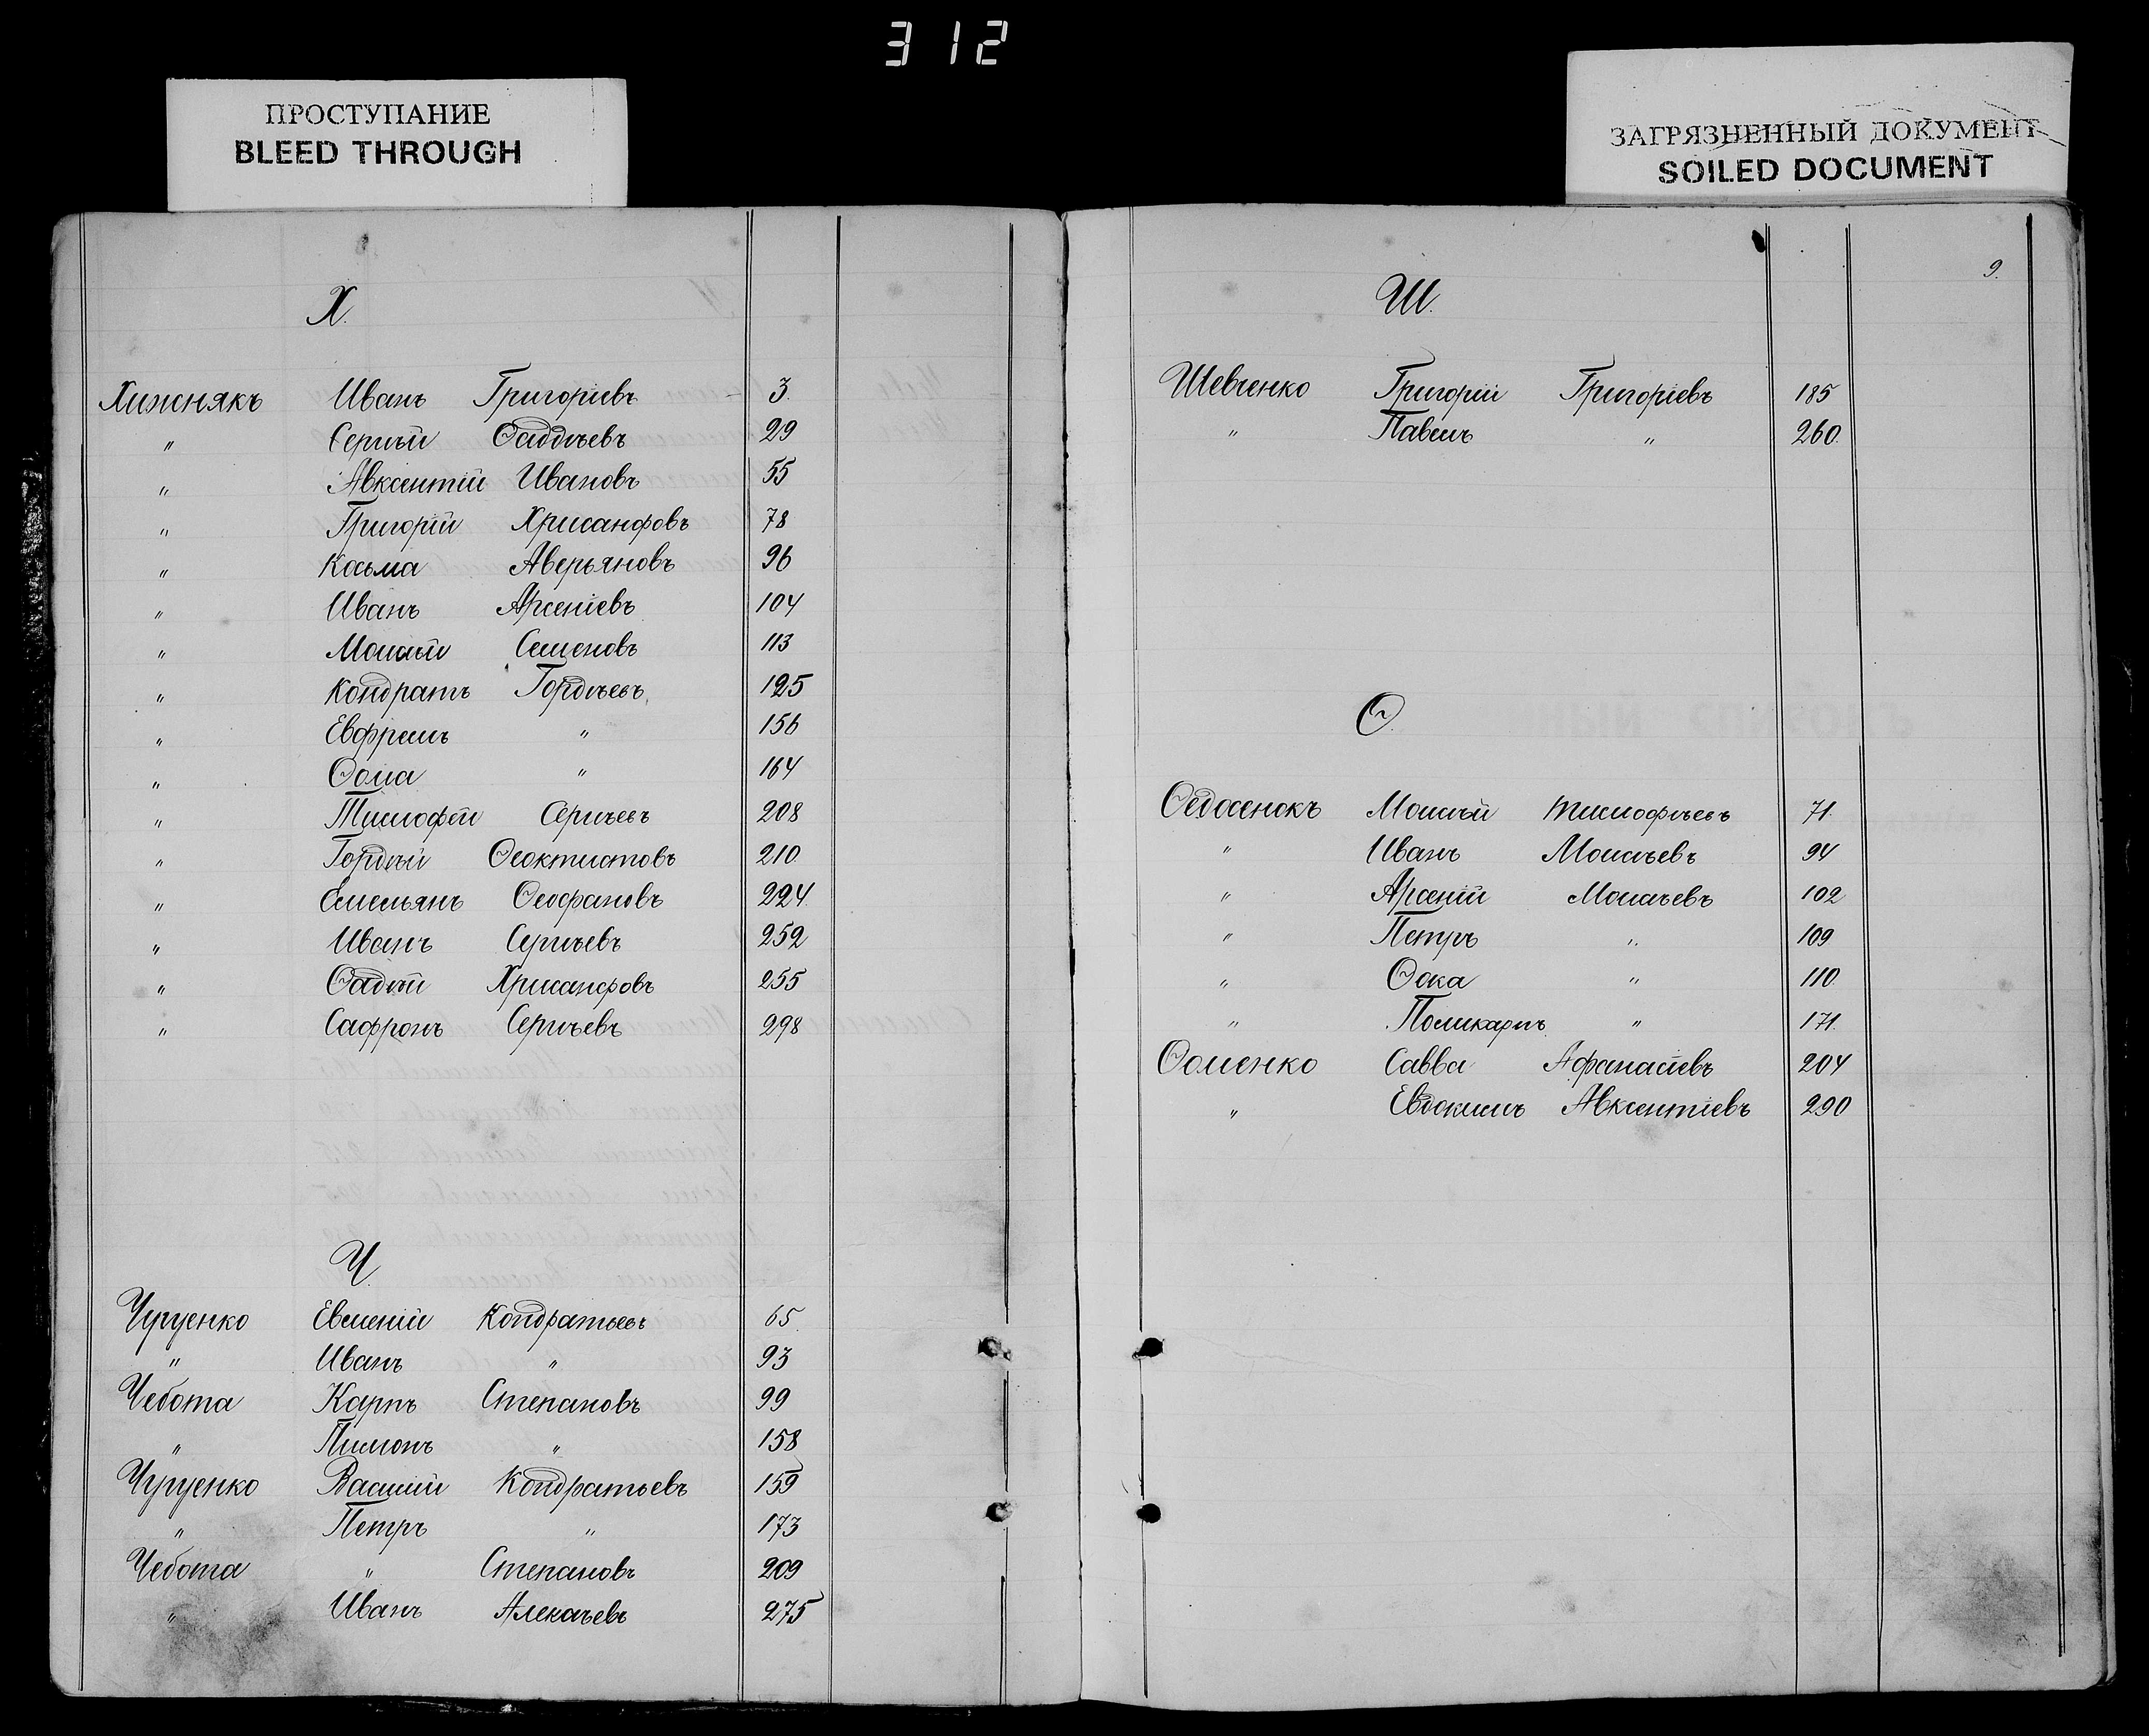 312
ПРОСТУПАНИЕ
BLEED THROUGH
ЗАГРЯЗНЕННЫЙ ДОКУМЕНТ
SOILED DOCUMENT
Х.
Хижнякъ Иванъ Григоріевъ 3.
" Сергѣй Ѳаддѣевъ 29
" Авксентій Ивановъ 55
" Григорій Хрисанфовъ 78
" Косьма Аверьяновъ 96
" Иванъ Арсеніевъ 104
" Моисѣй Семеновъ 113
" Кондратъ Гордѣевъ 125
" Евфремъ " 156
" Ѳома " 164
" Тимофѣй Сергѣевъ 208
" Гордѣй Ѳеоктистовъ 210
" Емельянъ Ѳеофановъ 224
" Иванъ Сергѣевъ 252
" Ѳадѣй Хрисанфовъ 255
" Сафронъ Сергѣевъ 298
Ч.
Чугуенко Евмений Кондратьевъ 65
" Иванъ " 93
Чебота Карпъ Степановъ 99
" Пимонъ " 158
Чугуенко Василій Кондратьевъ 159
" Петръ " 173
Чебота " Степановъ 209
" Иванъ Алексѣевъ 275
9.
Ш.
Шевченко Григорій Григоріевъ 185
" Павелъ " 260.
Ѳ.
Ѳедосенокъ Моисѣй Тимофѣевъ 71.
" Иванъ Моисѣевъ 94
" Арсеній Моисѣевъ 102
" Петръ " 109
" Ѳока " 110.
" Поликарпъ " 171.
Ѳоменко Савва Афанасіевъ 204
" Евдокимъ Авксентіевъ 290